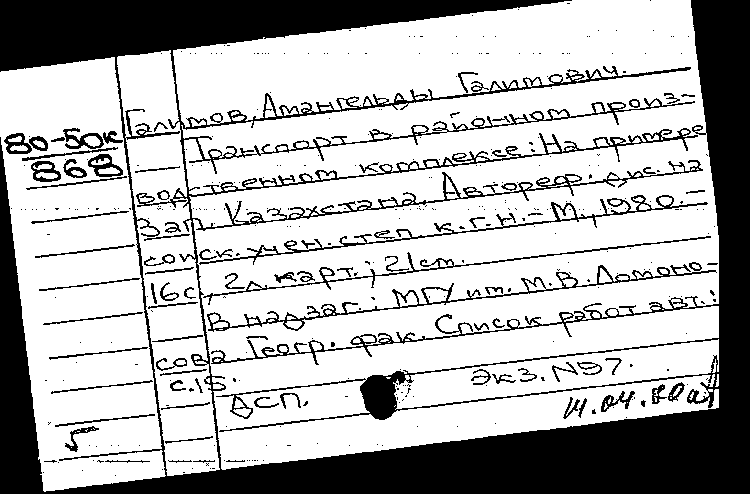 Галимов, Амангельды Галимович.
80-50к
868
Транспорт в районном произ-
водственном комплексе: На примере
Зап. Казахстана. Автореф. дис. на
соиск. учен. степ. к.г.н. - М., 1980. -
16с., 2л. карт.; 21см.
В надзаг.: МГУ им. М.В. Ломоно-
сова. Геогр. фак. Список работ авт.:
с.15.
ДСП.
Экз. N97.
14.04.80